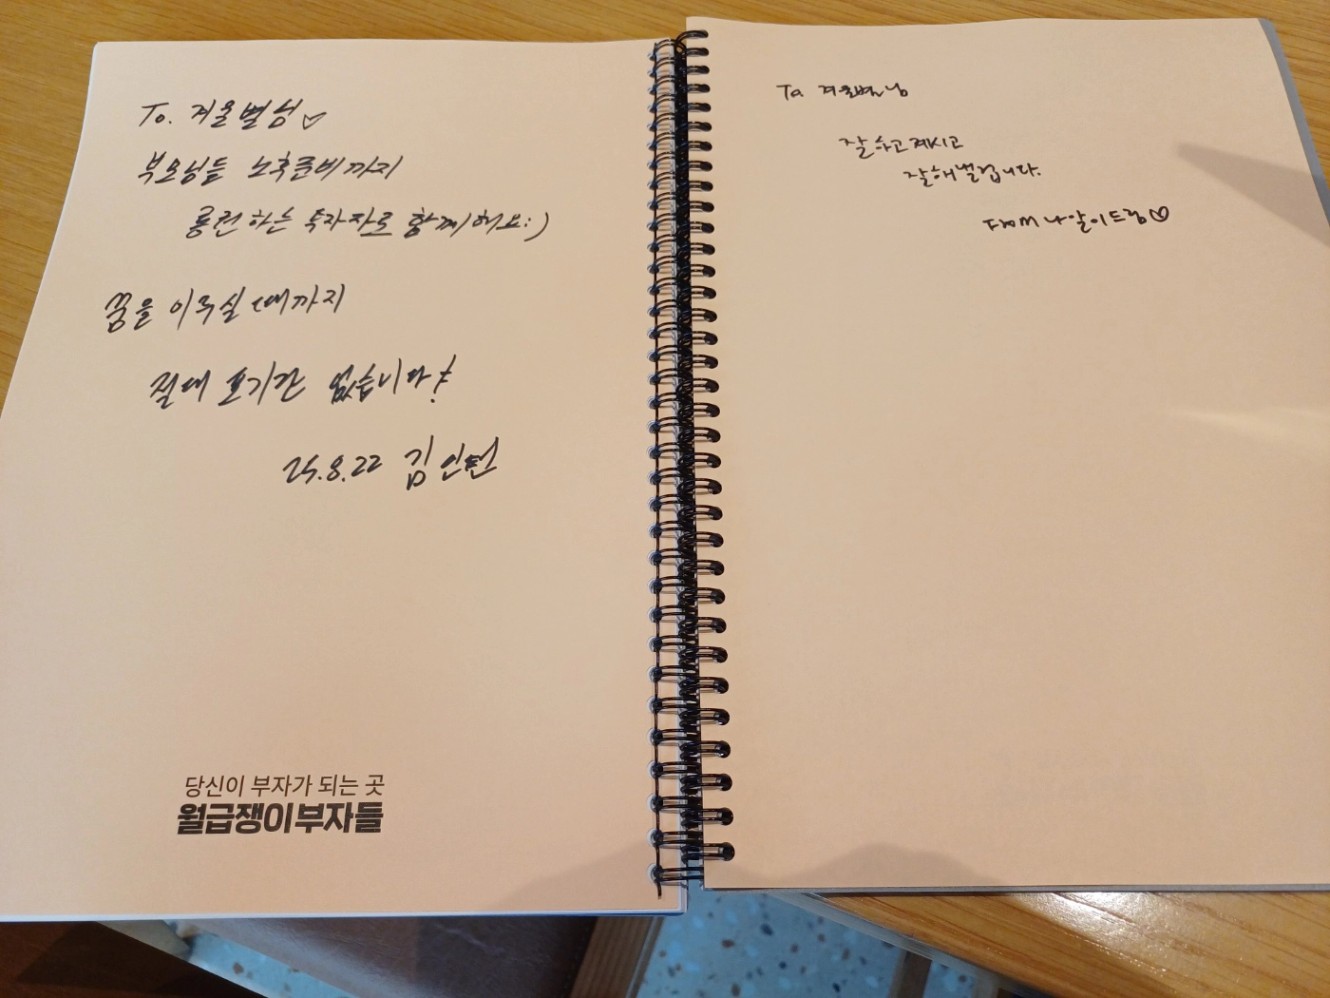 To. 겨울별님♡
부모님들 노후준비까지
롱런하는 투자자로 함께해요:)
꿈을 이루실 때까지
절대 포기란 없습니다!
25.8.22 김인턴
당신이 부자가 되는 곳
월급쟁이부자들
To 겨울별님
잘하고 계시고
잘해낼겁니다.
From 나알이드림♡